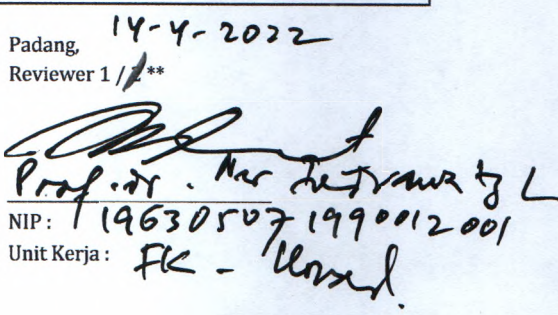 Padang, 14-4-2022
Reviewer 1 / 2 **
Prof. dr. Nur Indrawaty L
NIP : 19630507 1990012001
Unit Kerja : FK - Unand.